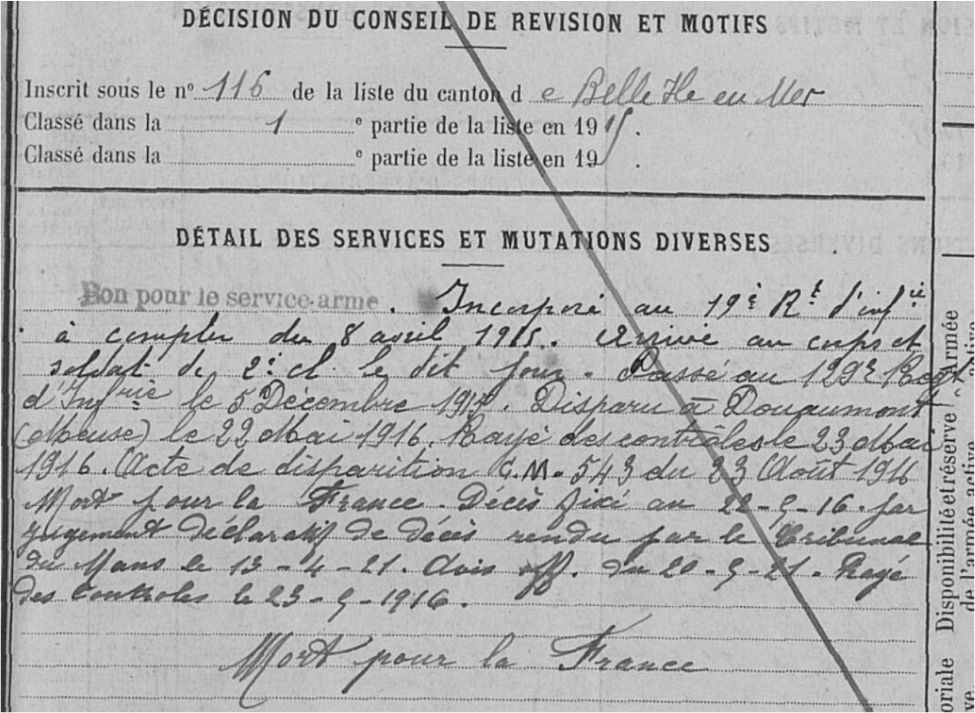 DÉCISION DU CONSEIL DE REVISION ET MOTIFS
Inscrit sous le nº 116 de la liste du canton d e Belle Ile en Mer
Classé dans la 1 e partie de la liste en 1915.
Classé dans la e partie de la liste en 19 .
DÉTAIL DES SERVICES ET MUTATIONS DIVERSES
Bon pour le service armé . Incorporé au 19e Rt d'infie
à compter du 8 avril 1915. Arrivé au corps et
soldat de 2e cl. le dit jour. Passé au 129e Regt
d'Infrie le 5 Décembre 1915. Disparu à Douaumont
(Meuse) le 22 Mai 1916. Rayé des contrôles le 23 Mai
1916. Acte de disparition C.M. 543 du 23 Août 1916
Mort pour la France. Décès fixé au 22-5-16. par
jugement déclaratif de décès rendu par le Tribunal
du Mans le 13-4-21. Avis off. du 20-5-21. Rayé
des contrôles le 23-5-1916.
Mort pour la France
Disponibilité et réserve
de l'armée active
armée
oriale